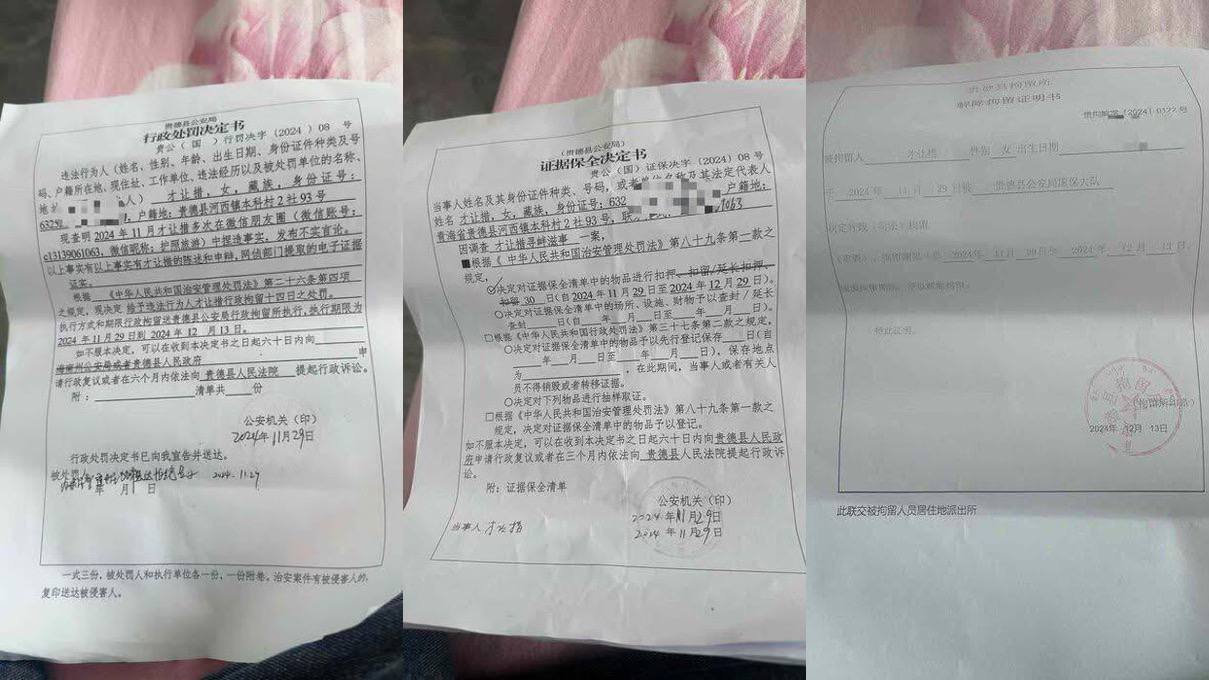 贵德县公安局
行政处罚决定书
贵公（国）行罚决字（2024）08 号
违法行为人（姓名、性别、年龄、出生日期、身份证件种类及号
码、户籍所在地、现住址、工作单位、违法经历以及被处罚单位的名称、
地 人） 才让措，女，藏族，身份证号：
632 ，户籍地：贵德县河西镇本科村2社93号
现查明 2024年11月才让措多次在微信朋友圈（微信账号：
c13139061063，微信昵称：护照旅游）中捏造事实，发布不实言论。
以上事实有以上事实有才让措的陈述和申辩，网侦部门提取的电子证据
证实。
根据 《中华人民共和国治安管理处罚法》第二十六条第四项
之规定，现决定 给予违法行为人才让措行政拘留十四日之处罚。
执行方式和期限行政拘留送贵德县公安局行政拘留所执行，执行期限为
2024年11月29日到2024年12月13日。
如不服本决定，可以在收到本决定书之日起六十日内向
海南州公安局或者贵德县人民政府 申
请行政复议或者在六个月内依法向 贵德县人民法院 提起行政诉讼。
附： 清单共 份
公安机关（印）
2024年11月29日
行政处罚决定书已向我宣告并送达。
被处罚人 2024.11.29
年 月 日
一式三份，被处罚人和执行单位各一份，一份附卷。治安案件有被侵害人的，
复印送达被侵害人。
（贵德县公安局）
证据保全决定书
贵公（国）证保决字（2024）08号
当事人姓名及其身份证件种类、号码，或者单位名称及其法定代表人
姓名 才让措，女，藏族，身份证号：632 户籍地：
青海省贵德县河西镇本科村2社93号，联 1063
因调查 才让措寻衅滋事 一案，
■根据《 中华人民共和国治安管理处罚法》第八十九条第一款之
规定，
决定对证据保全清单中的物品进行扣押、扣留/延长扣押、
扣留 30 日（自2024年11月29日至2024年12月29日）。
○决定对证据保全清单中的场所、设施、财物予以查封/延长
查封 日（自 年 月 日至 年 月 日）。
□根据《中华人民共和国行政处罚法》第三十七条第二款之规定，
○决定对证据保全清单中的物品予以先行登记保存 日（自
年 月 日至 年 月 日），保存地点
为 ，在此期间，当事人或者有关人
员不得销毁或者转移证据。
○决定对下列物品进行抽样取证。
□根据《中华人民共和国治安管理处罚法》第八十九条第一款之
规定，决定对证据保全清单中的物品予以登记。
如不服本决定，可以在收到本决定书之日起六十日内向贵德县人民政
府申请行政复议或者在三个月内依法向 贵德县人民法院提起行政诉
讼。
附：证据保全清单
公安机关（印）
2024年11月29日
2024年11月29日
当事人 才让措
贵德县拘留所
解除拘留证明书
贵拘解字〔2024〕0122号
被拘留人 才让措 性别 女 出生日期
于 2024 年 11 月 29 日被 贵德县公安局国保大队
决定行政（司法）拘留
2024年 11月 29日至 2024年 12月 13日，
特此证明。
（拘留所印）
2024年 12月 13日
此联交被拘留人员居住地派出所